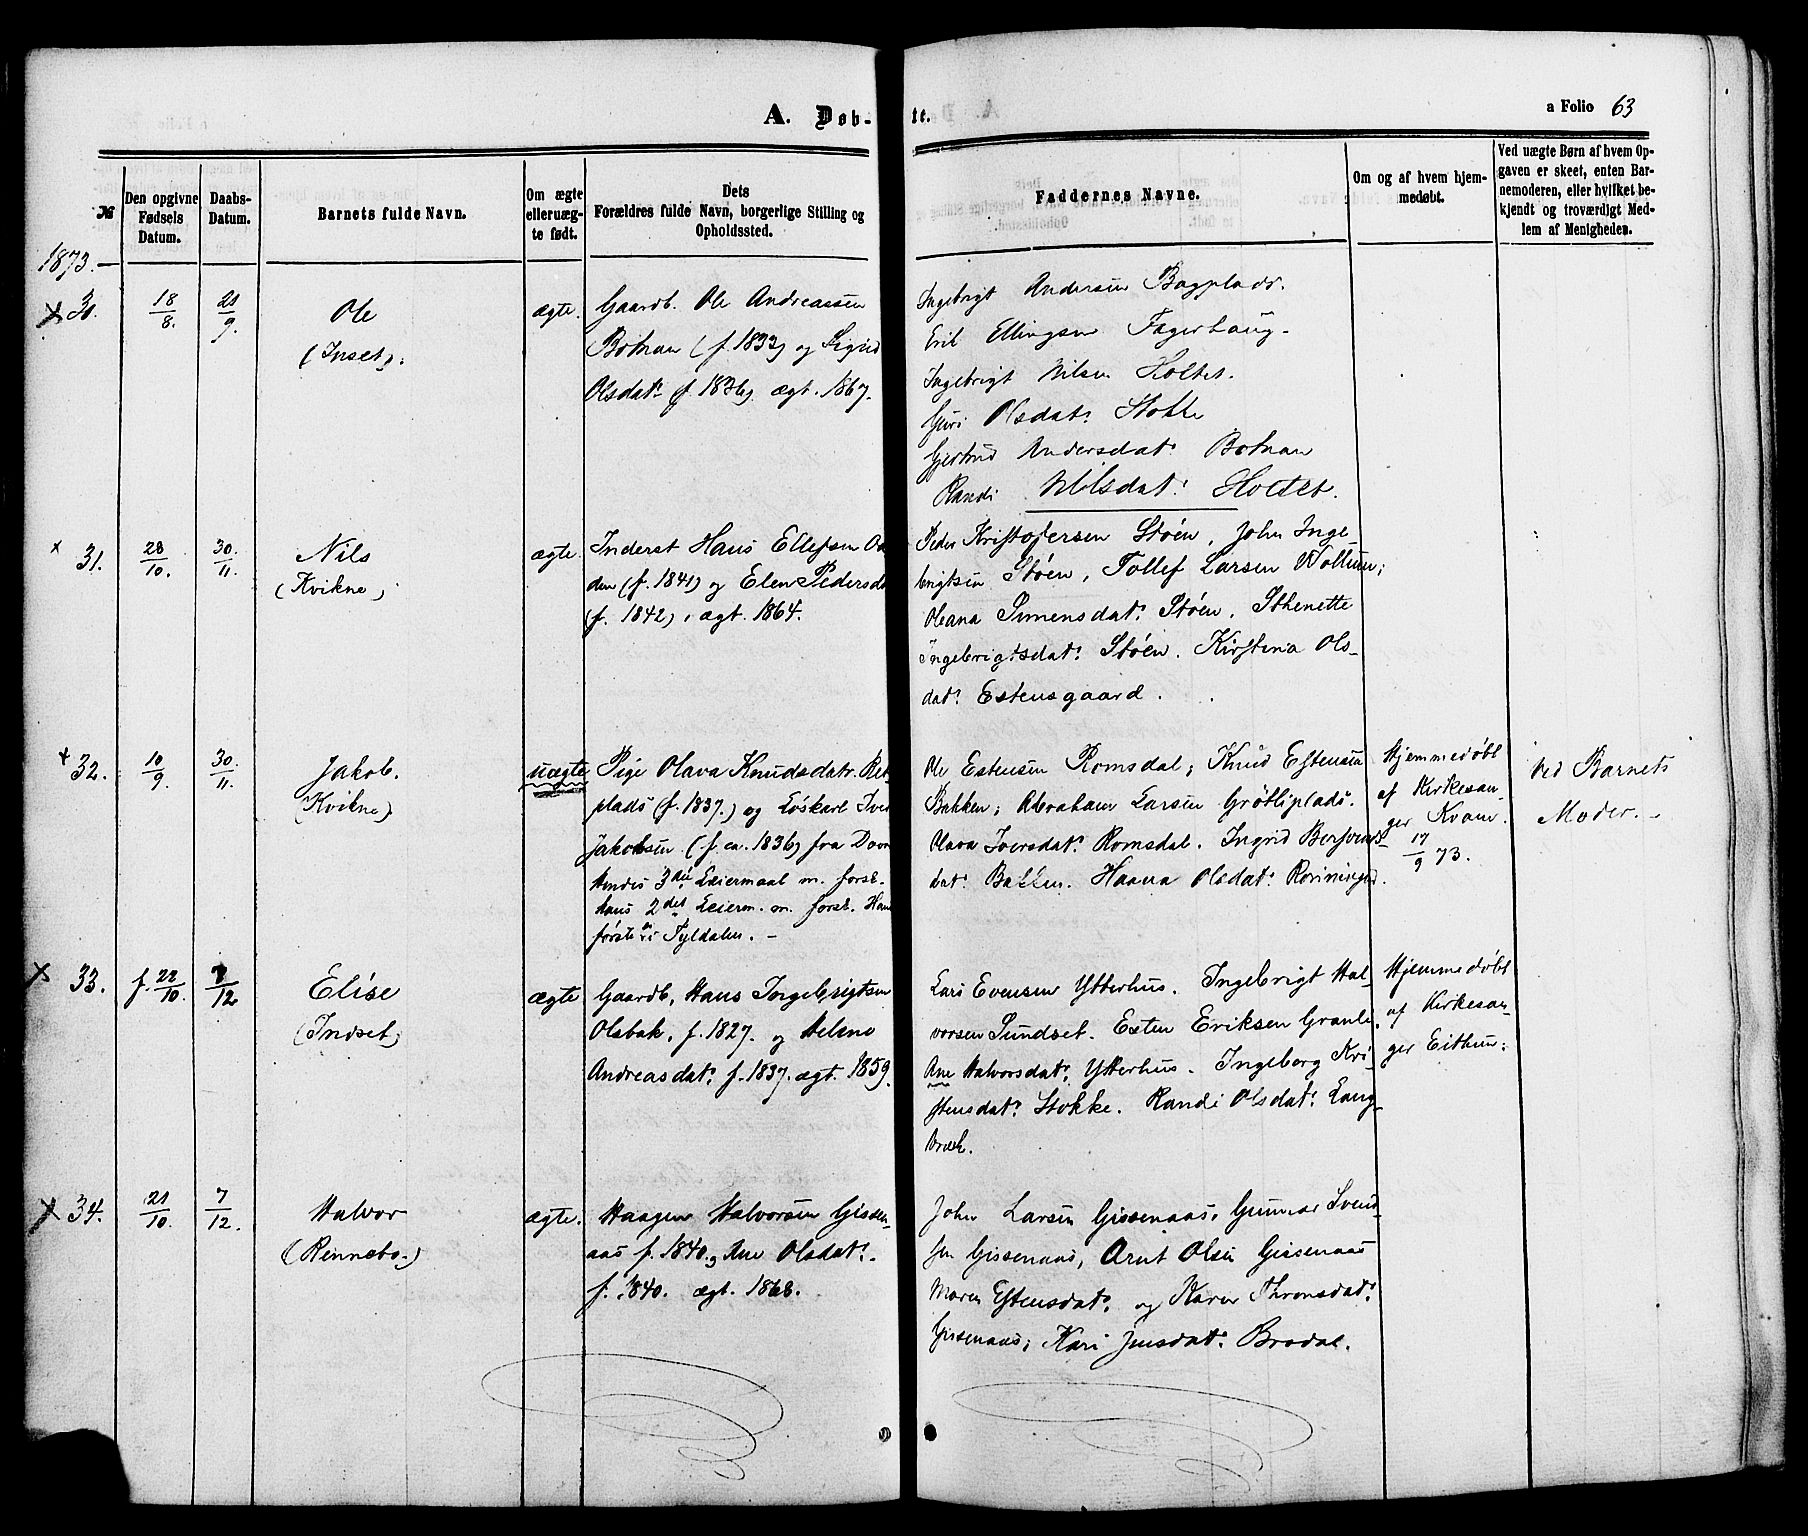 A. Døb-
te.
a Folio 63
№
Den opgivne Fødsels Datum.
Daabs-Datum.
Barnets fulde Navn.
Om ægte eller uægte født.
Dets Forældres fulde Navn, borgerlige Stilling og Opholdssted.
Faddernes Navne.
Om og af hvem hjemmedøbt.
Ved uægte Børn af hvem Opgaven er skeet, enten Barnemoderen, eller hvilket bekjendt og troværdigt Medlem af Menigheden.
1873.
30. 18/8. 21/9
Ole
(Inset).
ægte.
Gaardb. Ole Andreassen
Botnan (f. 1833) og Sigrid
Olsdatr (f. 1836). ægt. 1867.
Ingebrigt Andersen Bagplads.
Erik Ellingsen Fagerhaug.
Ingebrigt Nilsen Holtet.
Guri Olsdatr Stokke
Gjertrud Andersdatr Botnan
Randi Nilsdatr Holtet.
31. 28/10. 30/11.
Nils
(Kvikne)
ægte.
Inderst Hans Ellefsen Os-
den (f. 1841) og Elen Pedersd
(f. 1842), ægt. 1864.
Peder Kristofersen Støen, John Inge-
brigtsen Støen, Tollef Larsen Vollum;
Oleana Simensdatr Støen, Sthenette
Ingebrigtsdatr Støen. Kirstina Ols-
datr Estensgaard.
32. 10/9 30/11.
Jakob.
(Kvikne)
uægte
Pige Olava Knudsdatr. Ret
plads (f. 1837.) og Løskarl Iver
Jakobsen (f. ca. 1836) fra Dovre
Hendes 3die Leiermaal m. forsk.
hans 2det Leierm. m. forsk. Hans
første i Tyldalen. -
Ole Estensen Romsdal; Knud Estensen
Bakken; Abraham Larsen Grøtliplads.
Olava Iversdatr Romsdal. Ingrid Bersvends
datr Bakken. Haana Olsdatr
Hjemmedøbt
af Kirkesan-
ger Kvam.
17/9 73.
Ved Barnets
Moder. -
33. f. 22/10. 7/12
Elise
(Indset)
ægte
Gaardb. Hans Ingebrigtsen
Olsbak, f. 1827. og Helene
Andreasdatr f. 1837. ægt. 1859.
Lars Evensen Ytterhus. Ingebrigt Hal-
vorsen Sundset. Esten Eriksen Granli.
Ane Halvorsdatr Ytterhus. Ingeborg Kri-
stensdatr Stokke. Randi Olsdatr Lang-
bræk.
Hjemmedøbt
af Kirkesan-
ger Eithun.
34. 21/10. 7/12.
Halvor
(Rennebo.)
ægte.
Haagen Halvorsen Gissen-
aas f. 1840. og Ane Olsdatr.
f. 1840. ægt. 1868.
John Larsen Gissenaas, Gunnar Svend-
sen Gissenaas, Arnt Olsen Gissenaas
Maren Estensdatr og Karen Thronsdatr
Gissenaas; Kari Jensdatr Brodal.